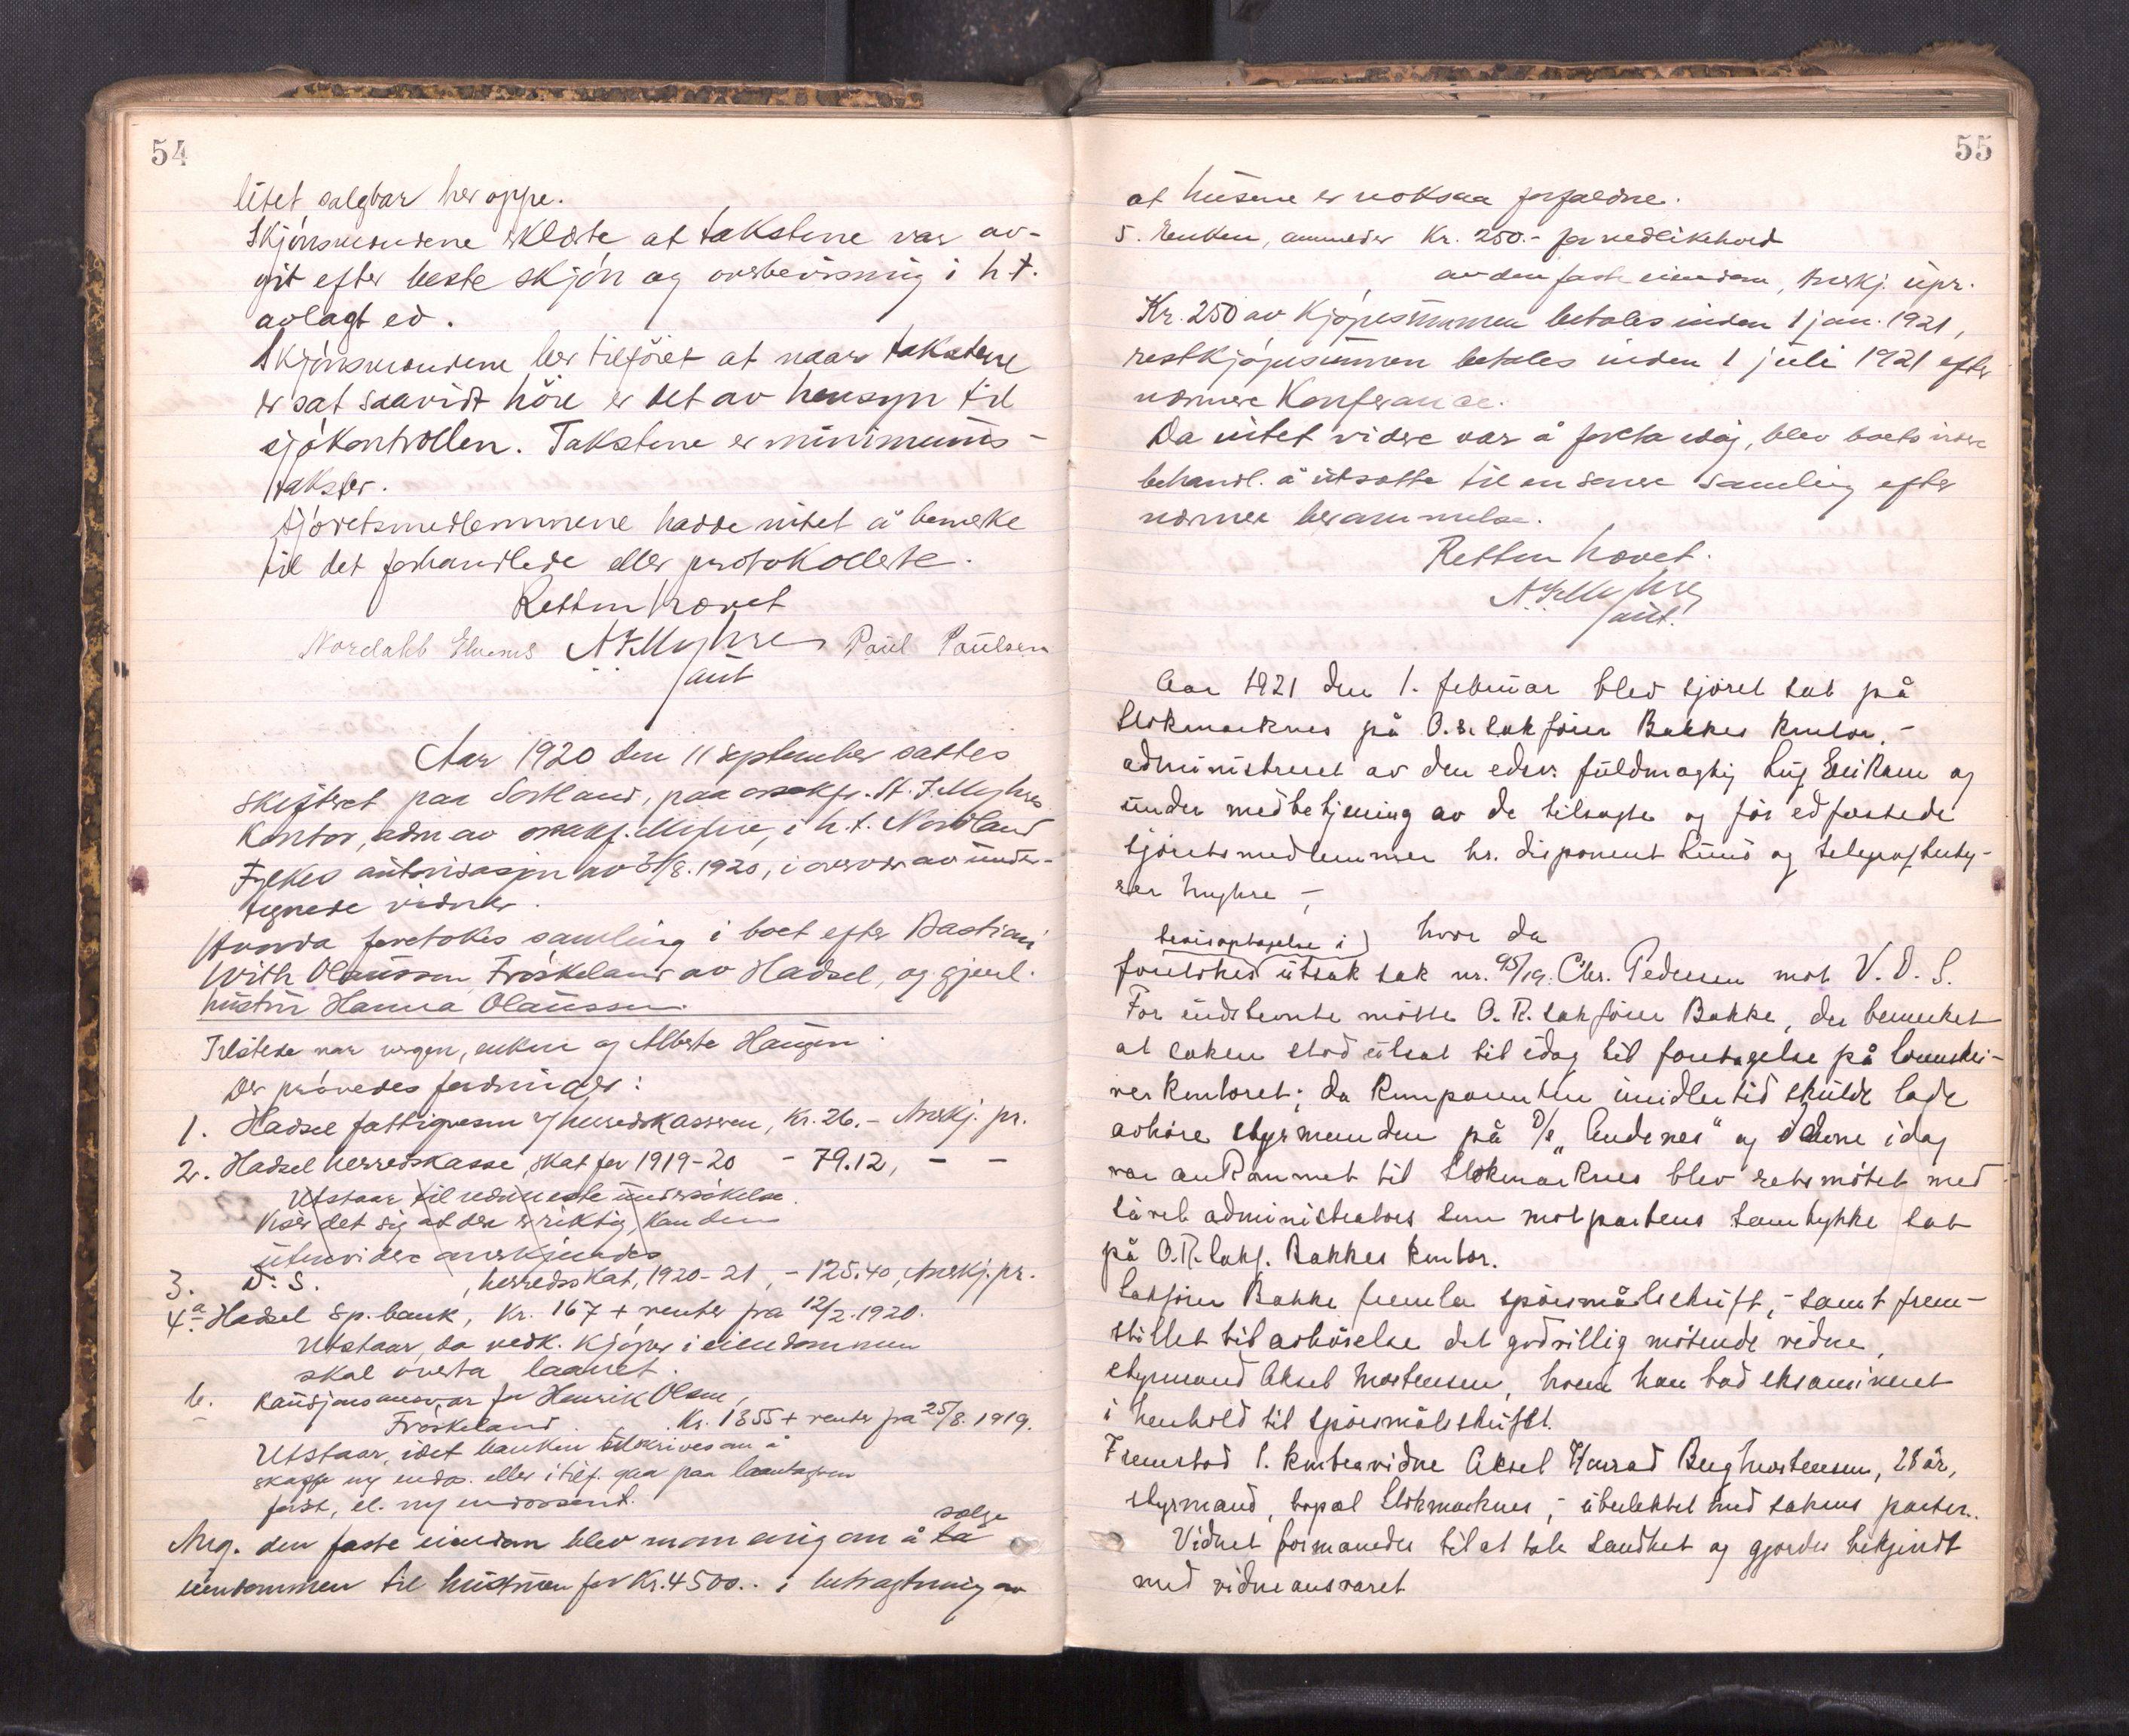 54
litet salgbar her oppe.
Skjönsmændene erklærte at takstene var av-
git efter beste skjön og overbevisning i h.t.
avlagt ed.
Skjönsmændene ber tilföiet at naar takstene
er sat saavidt höie er det av hensyn til
sjökontrollen. Takstene er minimums-
takster.
Sjöretsmedlemmene hadde intet å bemerke
til det forhandlede eller protokollerte.
Retten hævet
Nordahl A F Myhre Paul Paulsen
aut
Aar 1920 den 11 september sattes
skifteret paa Sortland, paa orsakf. A. F. Myhres
kontor, adm av orsakf. Myhre, i h.t. Nordland
Fylkes autorisasjon av 31/8. 1920, i overvær av under-
tegnede vidner.
Hvorda foretokes samling i boet efter Bastian
With Olaussen Fröskeland av Hadsel, og gjenl.
hustru Hanna Olaussen.
Tilstede var vergen, enken og Alberts Haugen.
Der prövedes fordringer:
1. Hadsel fattigvesen v/ herredskasseren, Kr. 26.- Anerkj. pr.
2. Hadsel herredskasse, skat for 1919-20 - 79.12, - -
Utstaar til nærmeste undersökelse.
Viser det sig at den er riktig, kan den
utenvidere anerkjendes
3. D. S. , herredsskat, 1920-21, - 125.40, Anerkj. pr.
4 a. Hadsel Sp. bank, Kr. 167 + renter fra 12/2. 1920.
Utstaar, da vedk. kjöper i eiendommen
skal overta laanet.
b. Kausjonsansvar for Henrik Olsen,
Fröskeland. Kr. 1355 + renter fra 25/8. 1919.
Utstaar, idet banken tilskrives om å
skaffe ny endos. eller i tilf. gaa paa laantageren
först, el. ny endossent.
sælge
Ang. den faste eiendom blev man enig om å ta
eiendommen til hustruen for Kr. 4500.. i betragtning av
55
at husene er noksaa forfaldne.
5. Enken, anmelder Kr. 250.- for vedlikehold
av den faste eiendom, Anerkj. upr.
Kr. 250 av kjöpesummen betales inden 1 jan. 1921,
restkjöpesummen betales inden 1 juli 1921 efter
nærmere konferance.
Da intet videre var å foreta idag, blev boets videre
behandl. å utsætte til en senere samling efter
nærmere berammelse.
Retten hævet.
A. F. Myhre
aut.
Aar 1921 den 1. februar blev sjöret sat på
Stokmarknes på O.R. sakförer Bakkes kontor, -
administreret av den edsv. fuldmægtig Eriksen og
under medbetjening av de tilsagte og för edfæstede
sjöretsmedlemmer hr. disponent Lund og telegrafbesty-
rer Myhre -,
hvor da
bevisoptagelse i
foretokes utsak sak nr. 95/19. Chr. Pedersen mot V. D. S.
For indstevnte mötte O. R. sakförer Bakke, der bemerket
at saken stod utsat til idag til foretagelse på sorenskri-
verkontoret; da komparenten imidlertid skulde lade
avhöre styrmanden på D/S "Andenes" og denne idag
var ankommet til Stokmarknes blev retsmötet med
såvel administrators som motpartens samtykke sat
på O.R. sakf. Bakkes kontor.
Sakförer Bakke fremla spörsmålsskrift, - samt frem-
stillet til avhörelse det godvillig mötende vidne,
styrmand Aksel Mortensen, hvem han bad eksamineret
i henhold til spörsmålsskriftet.
Fremstod 1. kontravidne Aksel Konrad Berg Mortensen, 28 år,
styrmand, bopæl Stokmarknes, - ubeslektet med sakens parter.
Vidnet formanedes til at tale sandhet og gjordes bekjendt
med vidneansvaret